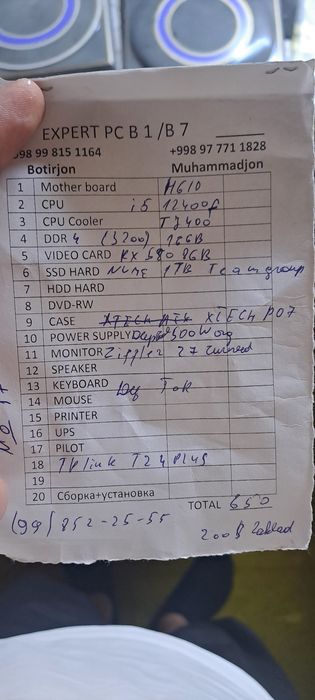 EXPERT PC B 1 /B 7
998 99 815 1164 +998 97 771 1828
Botirjon Muhammadjon
1 Mother board H610
2 CPU i5 12400f
3 CPU Cooler TJ400
4 DDR 4 (3200) 16GB
5 VIDEO CARD RX 580 8GB
6 SSD HARD NVME 1TB Teamgroup
7 HDD HARD
8 DVD-RW
9 CASE XTECH P07
10 POWER SUPPLY 500W
11 MONITOR Ziffler 27 curved
12 SPEAKER
13 KEYBOARD
14 MOUSE
15 PRINTER
16 UPS
17 PILOT
18 TPlink T24 Plus
19
20 Сборка+установка
TOTAL 650
(99) 852-25-55
200$ Zaklad